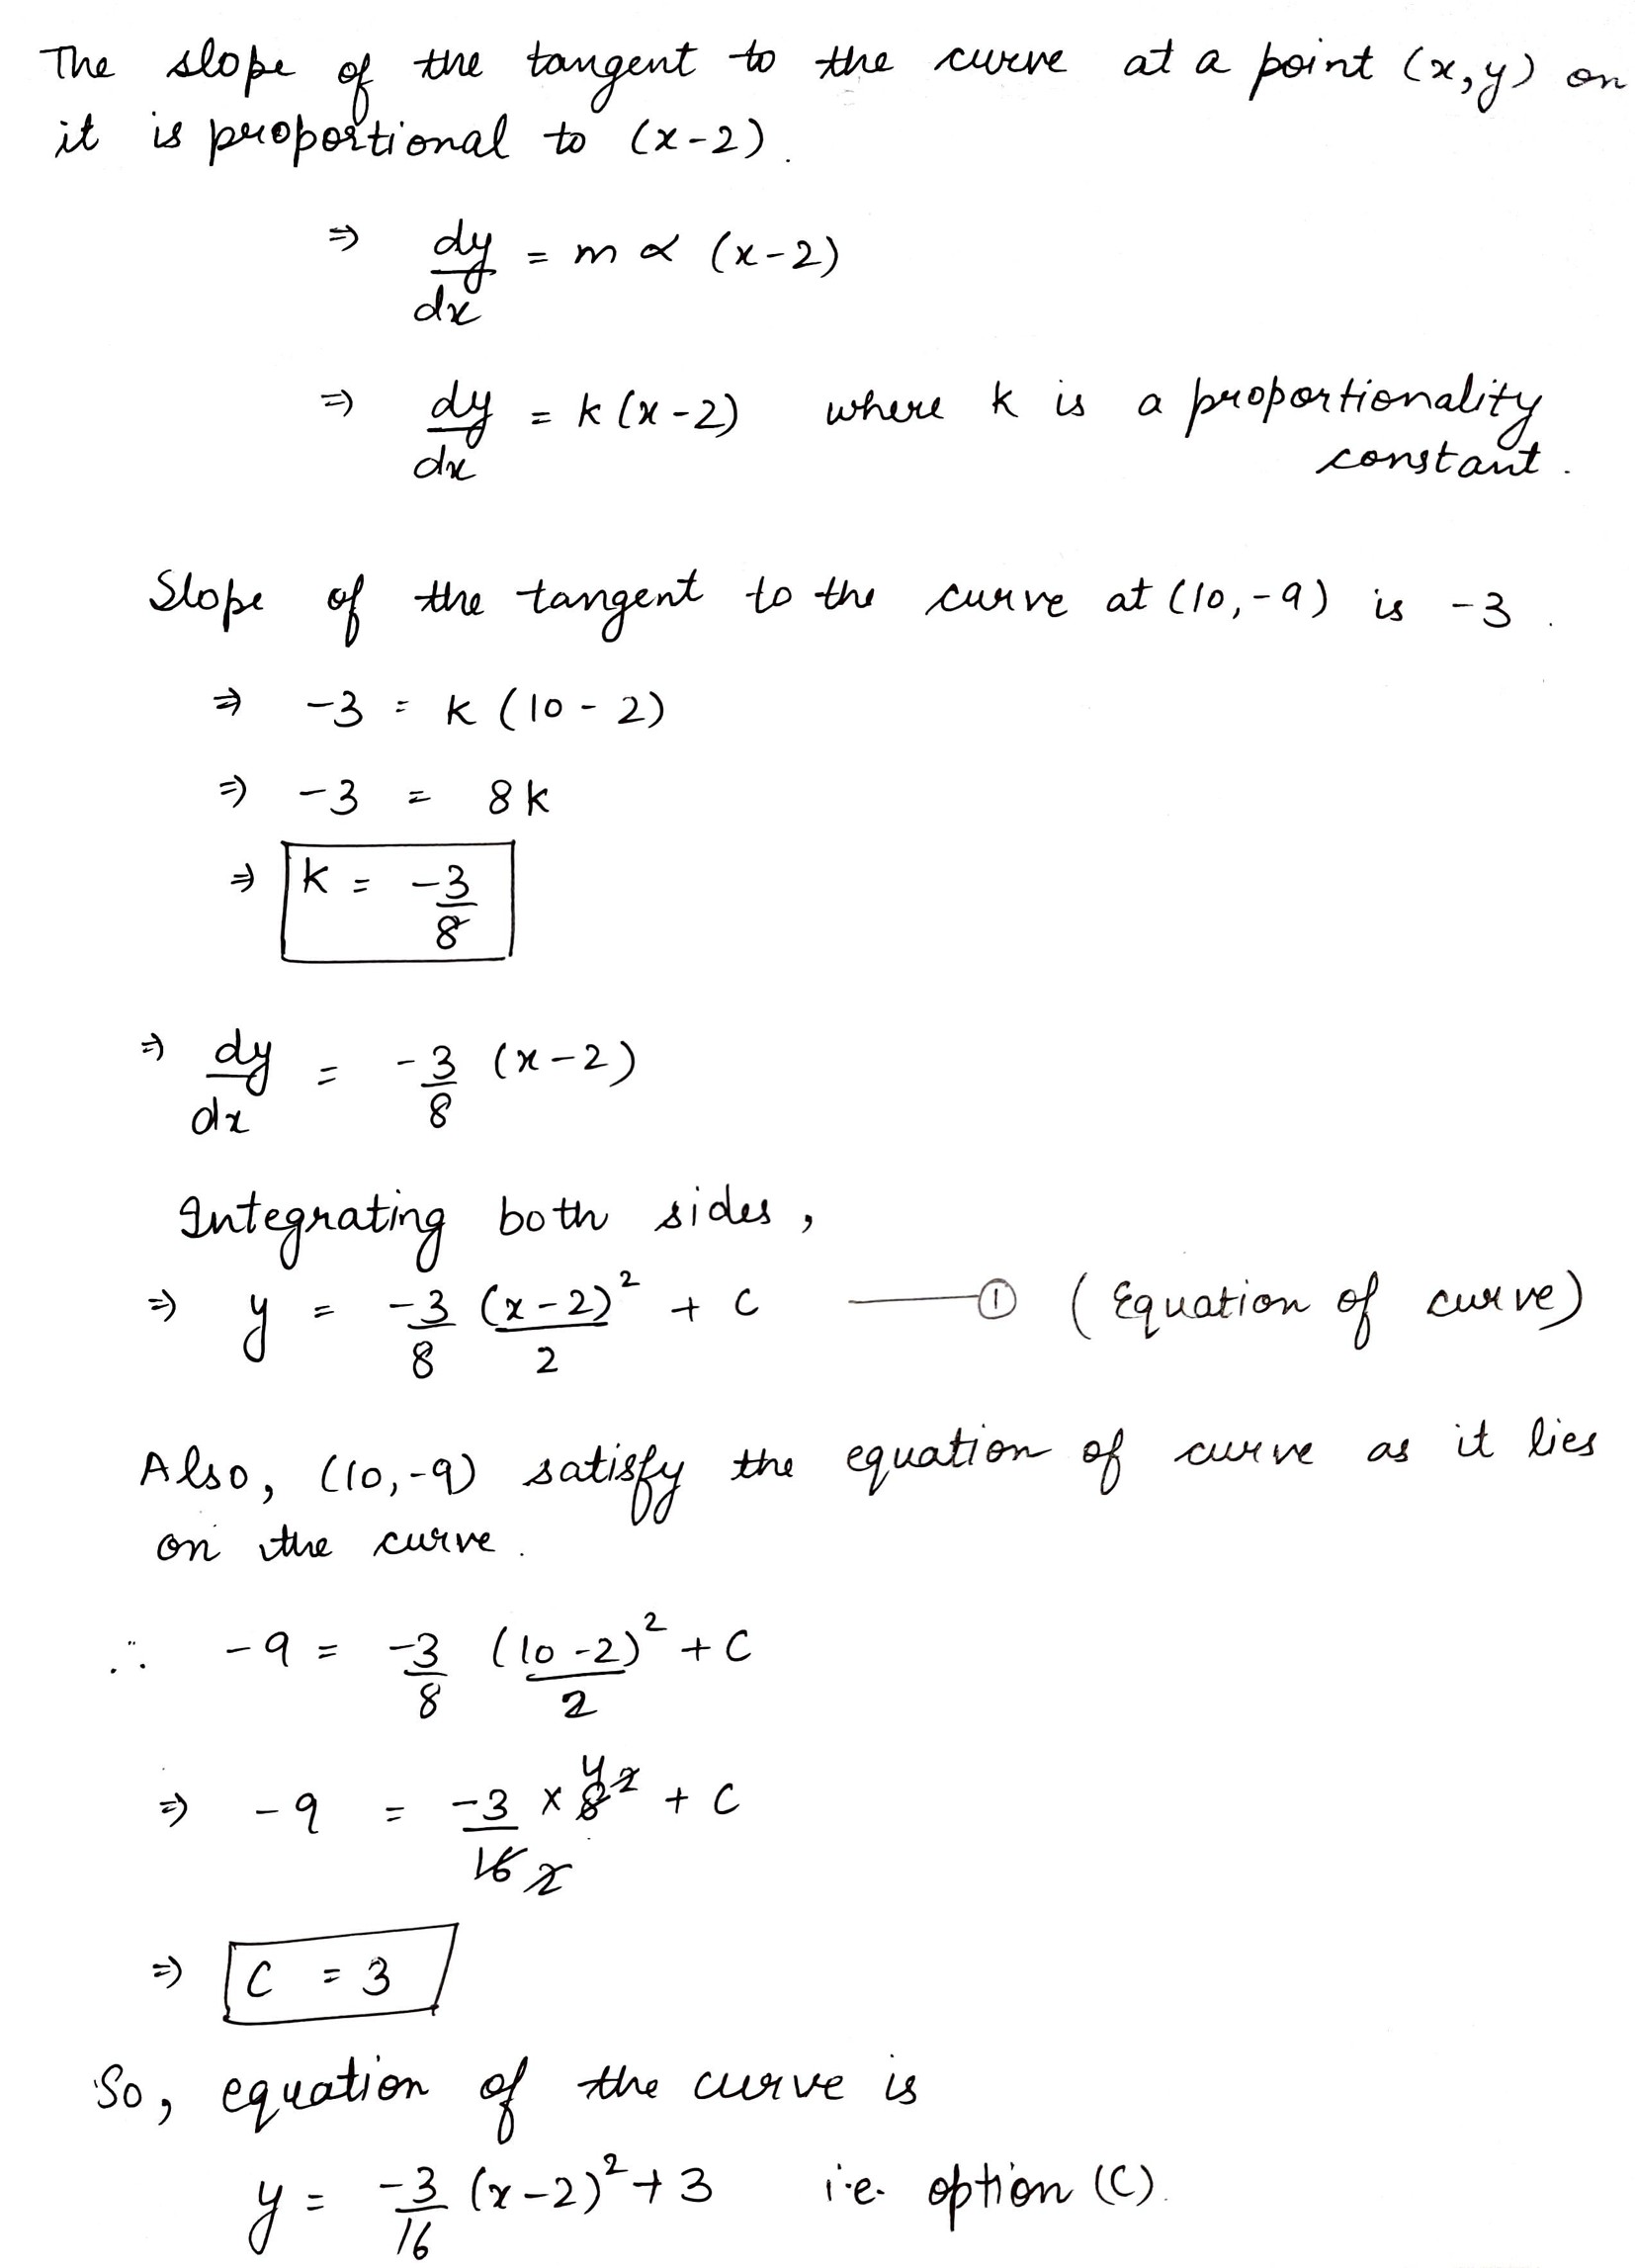 The slope of the tangent to the curve at a point (x,y) on
it is proportional to (x-2).
⇒ dy/dx = m ∝ (x-2)
⇒ dy/dx = k(x-2) where k is a proportionality
constant.
Slope of the tangent to the curve at (10,-9) is -3.
⇒ -3 = k(10-2)
⇒ -3 = 8k
⇒ k = -3/8
⇒ dy/dx = -3/8 (x-2)
Integrating both sides,
⇒ y = -3/8 (x-2)²/2 + C —— ① (Equation of curve)
Also, (10,-9) satisfy the equation of curve as it lies
on the curve.
∴ -9 = -3/8 (10-2)²/2 + C
⇒ -9 = -3/16 2 × 8² 4 + C
⇒ C = 3
So, equation of the curve is
y = -3/16 (x-2)² + 3 i.e. option (C).